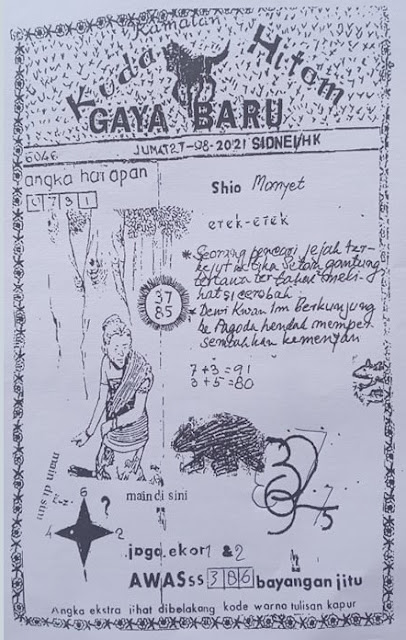 Kamalan
Kuda Hitam
GAYA BARU
6046
JUMAT 27-98-2021 SIDNEI/HK
angka harapan
0 7 3 1
Shio Monyet
erek-erek
* Seorang pencari jejak ter-
kejut ketika setan gantung
tertawa terbahak meli-
hat si cerobah
* Dewi Kwan Im Berkunjung
ke Pagoda hendak memper
sembahkan kemenyan
37
85
7+3=91
3+5=80
main di sini
6
?
4
2
main di sini
jaga ekor 1 & 2
AWASss 3 8 6 bayangan jitu
Angka ekstra lihat dibelakang kode warna tulisan kapur